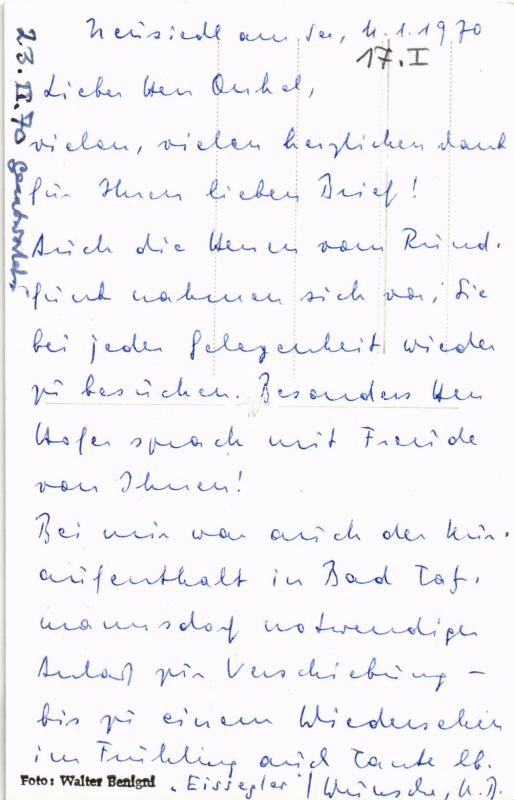 Neusiedl am See, 11.1.1970
17.I
23.II.70 beantwortet
Lieber Herr Onkel,
vielen, vielen herzlichen Dank
für Ihren lieben Brief!
Auch die Herren vom Rund-
funk nahmen sich vor, Sie
bei jeder Gelegenheit wieder
zu besuchen. Besonders Herr
Hofer sprach mit Freude
von Ihnen!
Bei mir war auch der Kur-
aufenthalt in Bad Tatz-
mannsdorf notwendiger
Anlaß zur Verschiebung –
bis zu einem Wiedersehen
im Frühling
Foto: Walter Benigni
"Eissegler" Wünsche,